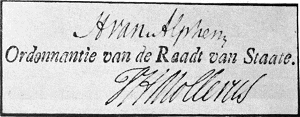 H van Alphen,
Ordonnantie van de Raadt van Staate.
JH Mollerus